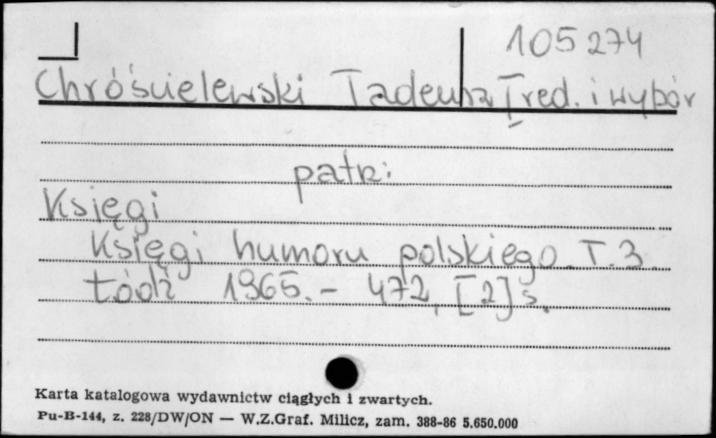 105 274
Chróścielewski Tadeusz [red. i wybór
patrz:
Księgi
Księgi humoru polskiego. T. 3.
Łódź 1965. – 472, [2] s.
Karta katalogowa wydawnictw ciągłych i zwartych.
Pu-B-144, z. 228/DW/ON — W.Z.Graf. Milicz, zam. 388-86 5.650.000